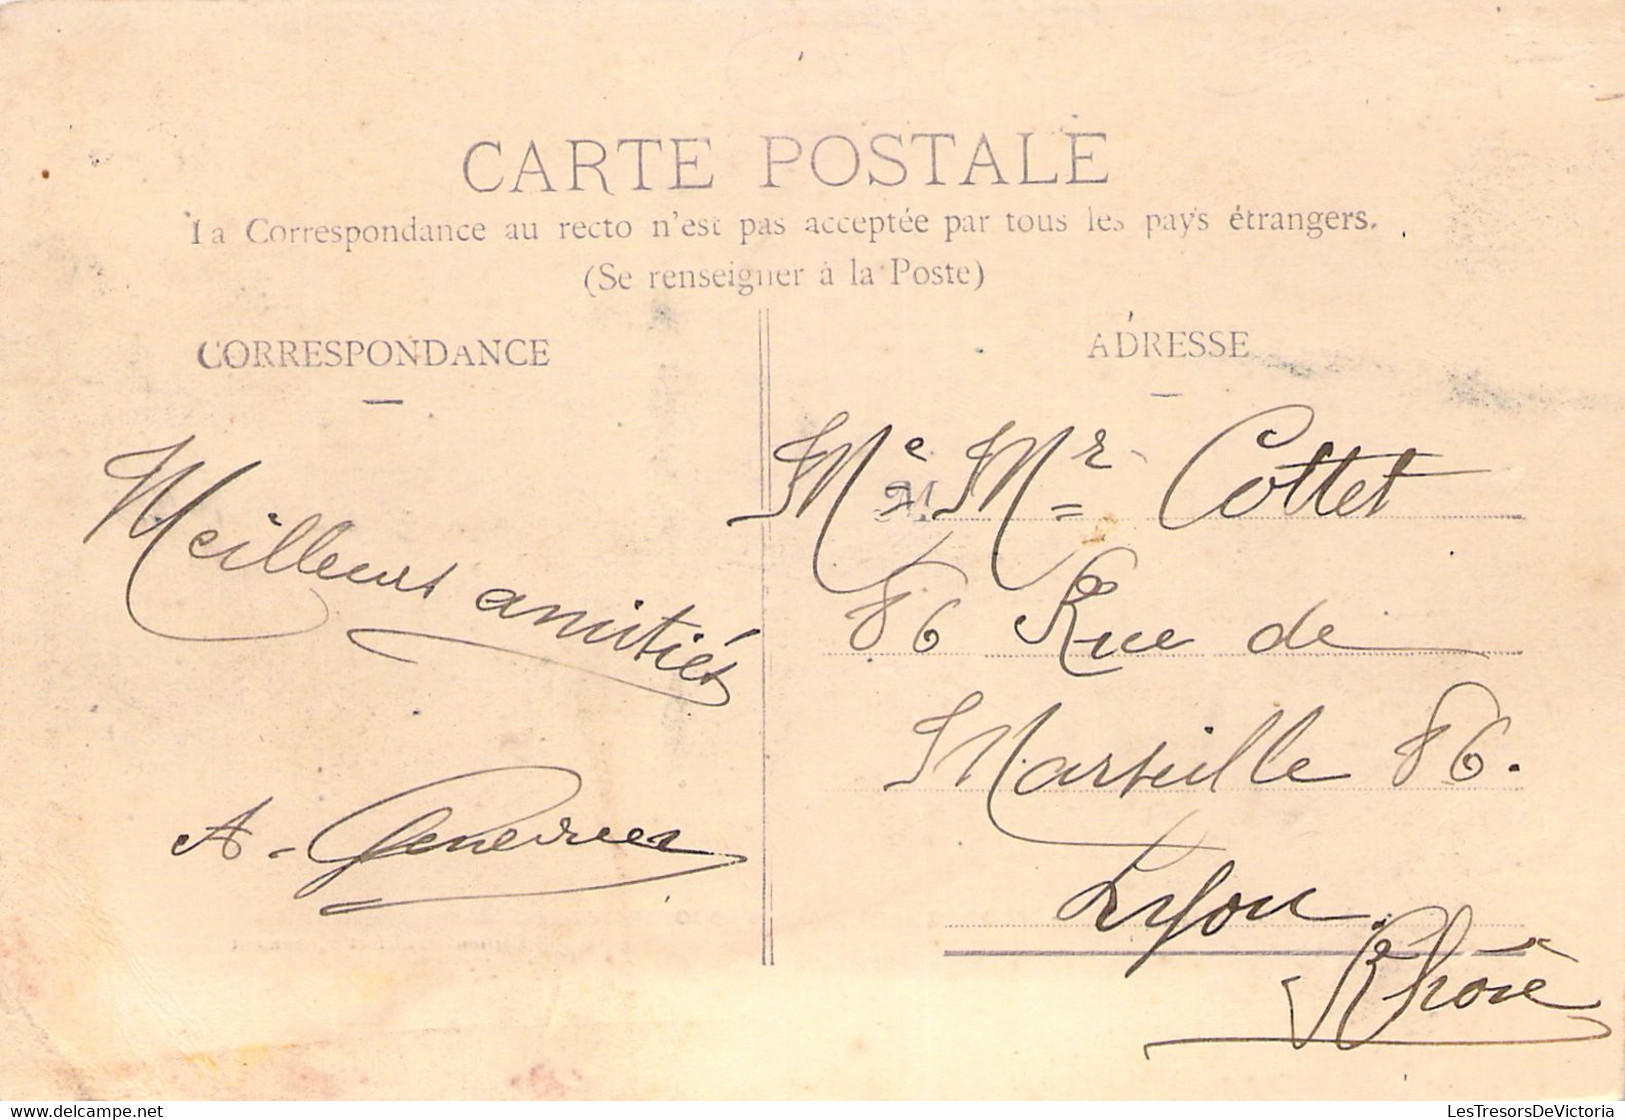 CARTE POSTALE
La Correspondance au recto n'est pas acceptée par tous les pays étrangers.
(Se renseigner à la Poste)
CORRESPONDANCE
Meilleurs amitiés
A. Genevrier
ADRESSE
Me M Mr Cottet
86 Rue de
Marseille 86.
Lyon
Rhône
LesTresorsDeVictoria.delcampe.net